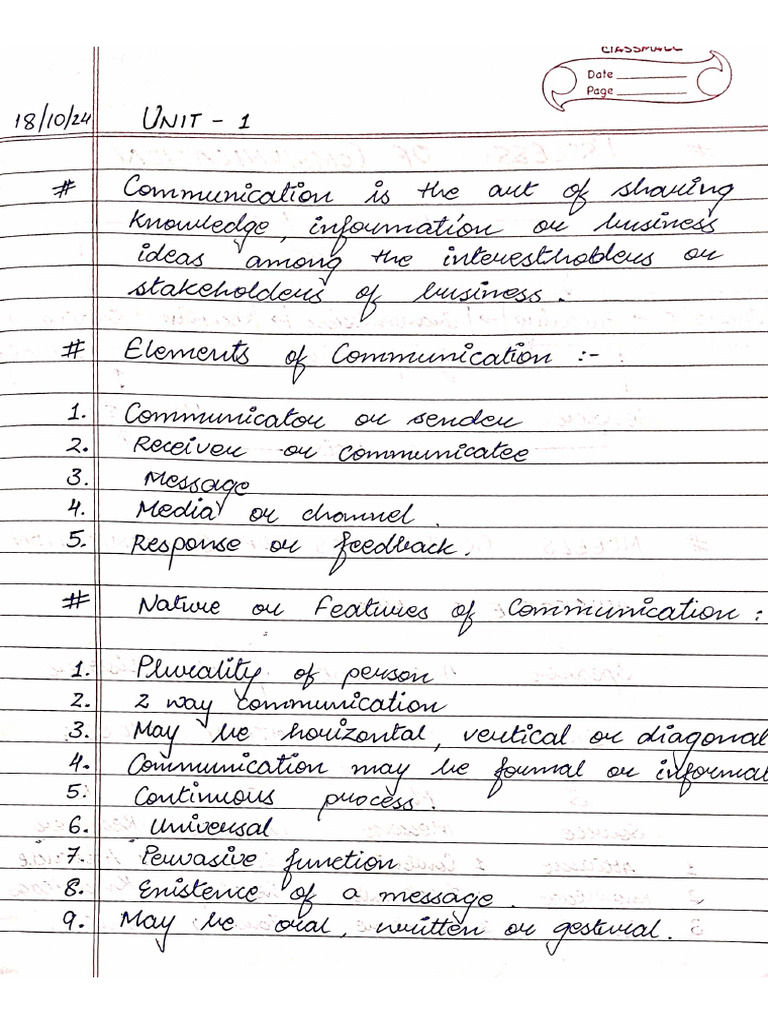 classmate
Date
Page
18/10/24 UNIT - 1
# Communication is the art of sharing
knowledge, information or business
ideas among the interestholders or
stakeholders of business.
# Elements of Communication :-
1. Communicator or sender
2. Receiver or communicatee
3. Message
4. Media or channel.
5. Response or feedback.
# Nature or Features of Communication :
1. Plurality of person
2. 2 way communication
3. May be horizontal, vertical or diagonal
4. Communication may be formal or informal
5. Continuous process.
6. Universal
7. Pervasive function
8. Existence of a message.
9. May be oral, written or gestural.